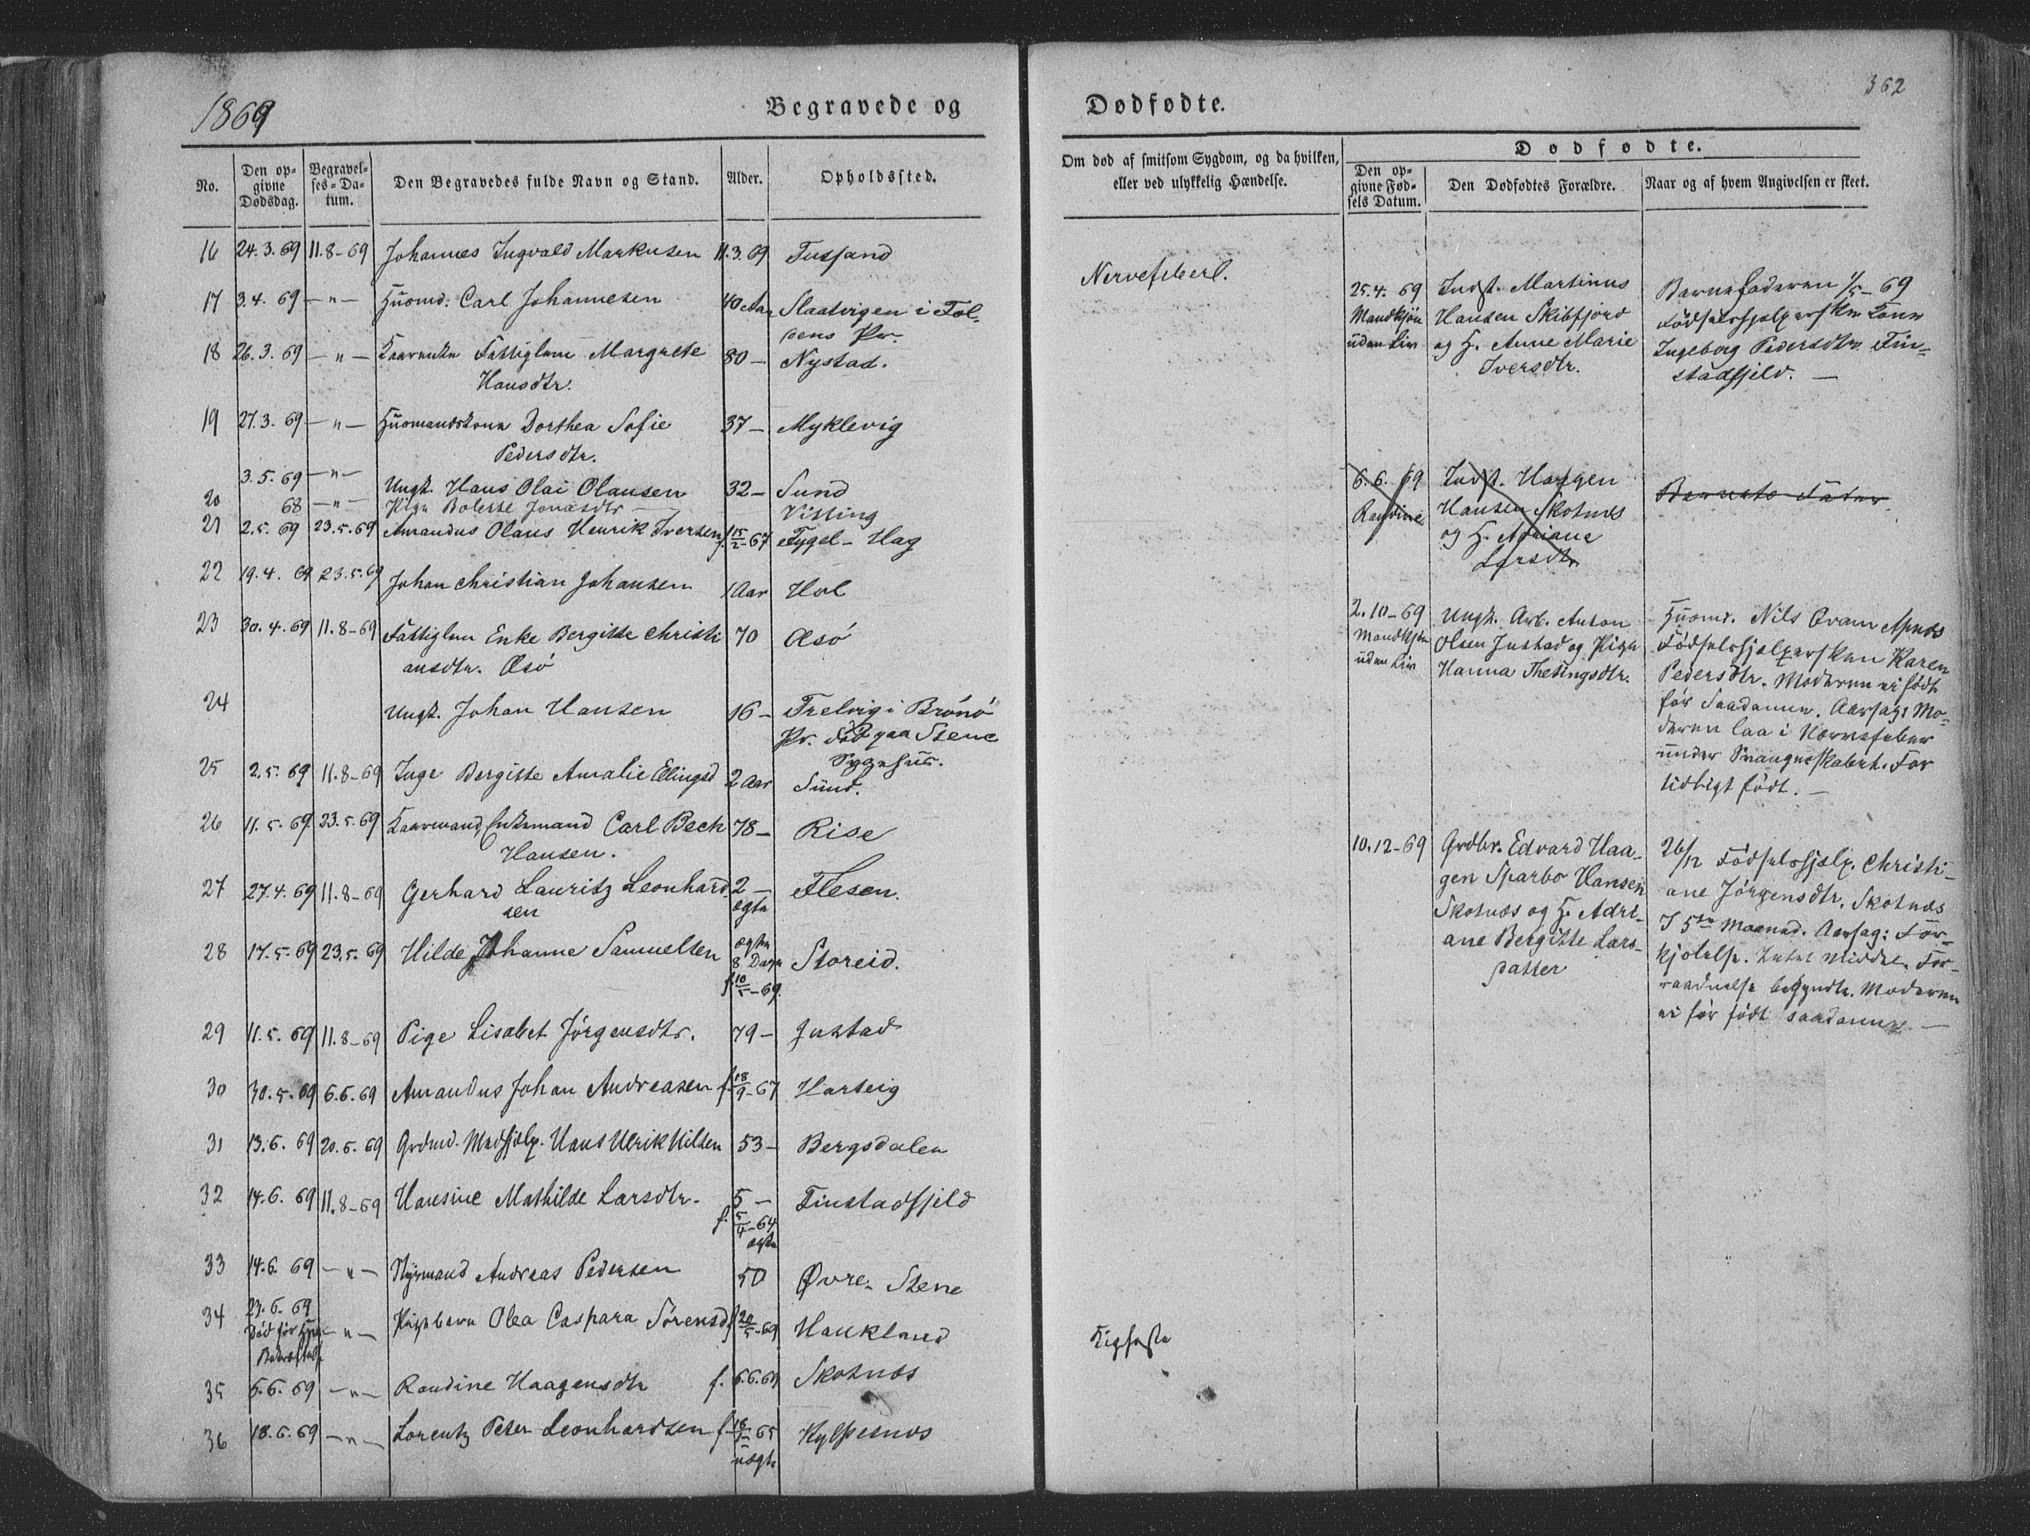 1869
Begravede og
No.
Den opgivne Dødsdag.
Begravelses-Datum.
Den Begravedes fulde Navn og Stand.
Alder.
Opholdssted.
16 24.3.69 11.8-69 Johannes Ingvald Markusen 11.3.69
17 3.4.69 -"- Huusmd. Carl Johannesen 40 Aar Slaatvigen i Fol-
dens Pr.
18 26.3.69 -"- Fattiglem Margrete 80- Nystad.
Hansdtr.
19 27.3.69 -"- Huusmandskone Dorthea Sofie 37- Myklevig
Pedersdtr.
20 3.5.69 -"- Ungk. Hans Olai Olausen 32- Sund
68 -"- Pige Jonasdtr
21 2.5.69 23.5.69 Amandus Olaus Henrik Iversen f. 15/2-67 Fygel-Hag
22 19.4.69 23.5.69 Johan Christian Johansen 1 Aar Hol
23 30.4.69 11.8-69 Fattiglem Enke Bergitte Christi 70 Æsø
ansdtr. Æsø
24 Ungk. Johan Hansen 16- Trelvig i Brønø
Pr. død paa Stene
Sygehus.
25 2.5.69 11.8-69 Inge Bergitte Amalie Elingsd 2 Aar Sund.
26 11.5.69 23.5.69 Kaarmand, Enkemand Carl Beck 78- Rise
Hansen.
27 27.4.69 11.8-69 Gerhard Lauritz Leonhard 2- Flesen.
sen ægte
28 17.5.69 23.5.69 Hilde Johanne Samuelsen ægte Storeid.
8 Dage
f. 10/5-69.
29 11.5.69 11.8-69 Pige Lisabet Jørgensdtr. 79- Justad
30 30.5.69 6.6.69 Amandus Johan Andreasen f. 18/9-67
31 13.6.69 20.6.69 Grdmd. Medhjælp. Hans Ulrik Nilsen 53- Bergsdalen
32 14.6.69 11.8-69 Hansine Mathilde Larsdtr. 5- Finstadfjeld
f. 5/4-64
ægte
33 14.6.69 -"- Andreas Pedersen 50 Øvre-Stene
34 23.6.69 -"- Pigebarn Olea Caspara Sørensd f. 20/5-69 Haukland
Død før
35 6.6.69 -"- Randine Haagensdtr f. 6.6.69 Skotnæs
36 18.6.69 -"- Lorentz Peter Leonhardsen f. -65
uægte
Dødfødte.
362
Om død af smitsom Sygdom, og da hvilken,
eller ved ulykkelig Hændelse.
Dødfødte.
Den opgivne Fødsels Datum.
Den Dødfødtes Forældre.
Naar og af hvem Angivelsen er skeet.
Nervefeberl.
25.4.69 Indst. Martinus Barnefaderen 1/5-69
Mandkjøn Hansen Skibfjord Fødselshjælpersken Kone
uden Liv og H. Anne Marie Ingeborg Pedersdtr. Fin-
Iversdtr. stadfjeld.
6.6.69 Indst. Haagen Barnets Fader
Randine Hansen Skotnæs
og H. Adriane
Larsdtr
2.10-69 Ungk. Arb. Anton Huusmd. Nils Apnæs
Mandkjøn Olsen Justad og Pige Fødselshjælpersken Karen
uden Liv Hanna Thetingsdtr. Pedersdtr. Moderen ei født
før Saadanne. Aarsag: Mo-
deren laa i Nervefeber
under Svangerskabet. For
tidligt født.
10.12-69 Grdbr. Edvard Haa- 26/12 Fødselshjælp. Christi-
gen Sparbo Hansen ane Jørgensdtr. Skotnæs
Skotnæs og H. Adri- I 5te Maaned. Aarsag: For-
ane Bergitte Lars- kjølelse. Intet Middel. For-
datter raadnelse begyndte. Moderen
ei før født saadanne.
Kighoste